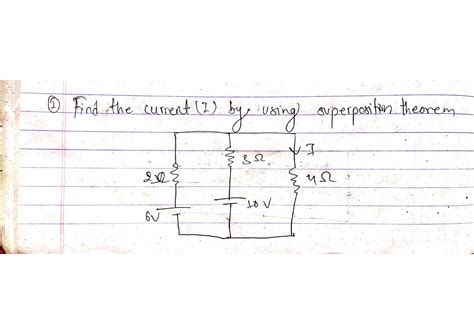 ① Find the current (I) by using superposition theorem
I
3Ω
2Ω
4Ω
10 V
6V